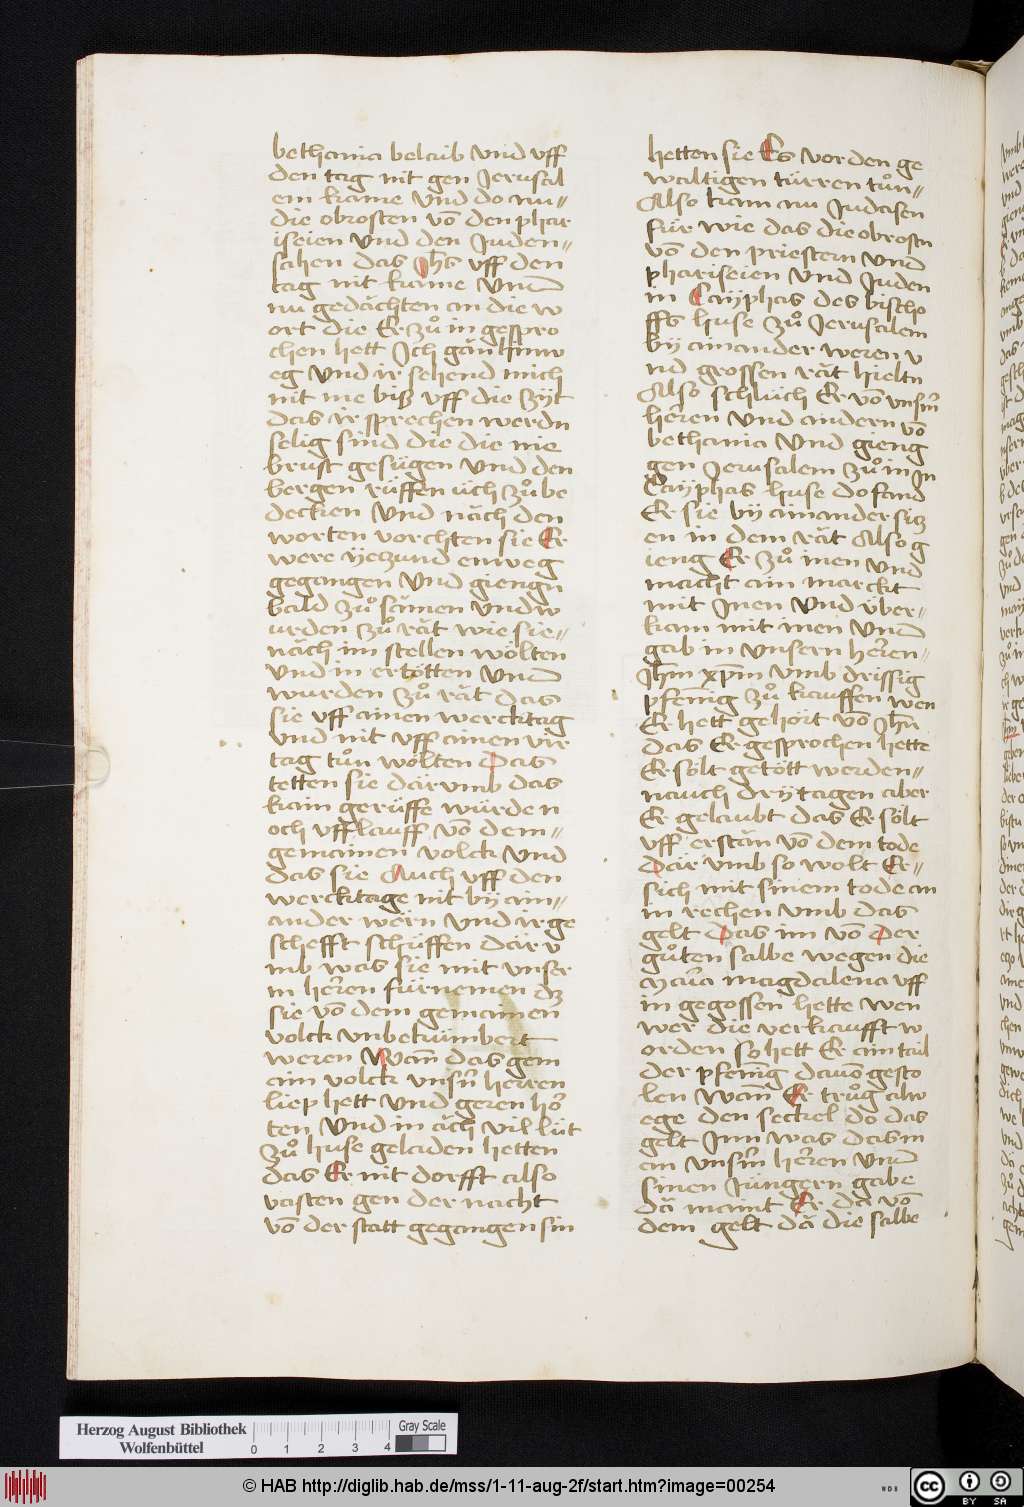 bethania belaib vnd vff
den tag nit gen Jerusal
em kame Vnd do nu=
die obrosten võ den phar
iseien Vnd den Juden=
sahen das Jh̄s vff den
tag nit kame Vnd
nu gedächten an die w
ort die Er zů in gespro
chen hett Jch gän hinw
eg Vnd ir sehend mich
nit me biß vff die zÿt
das ir sprechen werdn
selig sind die die nie
brust gesügen Vnd den
bergen rüffen üch zů be
decken Vnd näch den
worten vorchten sie Er
were ÿeczund enweg
gegangen Vnd giengn
bald zů sämen Vnd w
urden zů rät wie sie=
näch im stellen wölten
Vnd in ertötten Vnd
wurden zů rät das
sie vff ainen wercktag
Vnd nit vff ainen vir
tag tůn wölten Das
tetten sie där vmb das
kain gerüffe würde n
och vfflauff võ dem=
gemainen volck Vnd
das sie Auch vff den
wercktage nit bÿ ain=
ander wern Vnd ir ge
schefft schüffen där v
mb was sie mit vnser
m heren fürnemen dz
sie võ dem gemainen
volck vnbekümbert
weren Wan̄ das gem
ain volck vnsn̄ herren
liep hett Vnd geren hö
ten Vnd in äch vil lüt
zů huse geladen hetten
das Er nit dorfft also
vasten gen der nacht
võ der statt gegangen sin
hetten sie Es vor den ge
waltigen türren tůn=
Also kam nu Judasen
für wie das die obrostn
võ den priestern Vnd
phariseien Vnd Juden
in Cayphas des bischo
ffs huse zů Jerusalem
bÿ ainander weren v
nd grossen rät hieltn
Also schlüch Er võ vnsm̄
heren Vnd andern võ
bethania Vnd gieng
gen Jerusalem zů in In
Cayphas huse do fand
Er sie bÿ ainander sicz
en in dem rät Also g
ieng Er zů inen Vnd
macht ain marckt
mit Jnen Vnd über=
kam mit inen Vnd
gab in vnsern heren=
Jh̄m xp̄m vmb drissig
pfennig zů kauffen wen
Er hett gehört võ Jh̄u
das Er gesprochen hette
Er sölt getött werden=
nauch drÿ tagen aber
Er gelaubt das Er sölt
vff erstän võ dem tode
Där vmb so wolt Er=
sich mit sinem tode an
in rechen vmb das
gelt Das im võ der
gůten salbe wegen die
Maria magdalena vff
in gegossen hette wen
wer die verkaufft w
orden so hett Er ain tail
der pfenn̄ig dauõ gesto
len Wan̄ Er trůg alw
ege den seckel do das
gelt Jnn was das m
an vnsm̄ heren Vnd
sinen Jüngern gabe
dä maint Er da võ
dem gelt dä die salbe
Herzog August Bibliothek
Wolfenbüttel
0 1 2 3 4
Gray Scale
© HAB http://diglib.hab.de/mss/1-11-aug-2f/start.htm?image=00254
WDB
cc BY SA